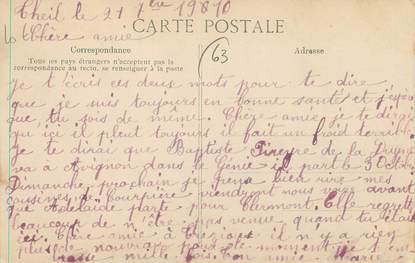 Theil le 21 7bre 19810
CARTE POSTALE
Chère amie
Correspondance
Adresse
Tous les pays étrangers n'acceptent pas la
correspondance au recto, se renseigner à la poste
63
Je t'écris ces deux mots pour te dire
que je suis toujours en bonne santé et j'espère
que tu sois de même. Chère amie je te dirai
qu'ici il pleut toujours il fait un froid terrible
Je te dirai que Baptiste de la
va à Avignon dans le Génie il part le 3 Octobre
Dimanche prochain je bien rire mes
cousines de viendront nous voir avant
que Adelaïde parte pour Clermont. Elle regrette
beaucoup de n'être pas venue quand tu étais
ici. Chère amie à il n'y a rien
plus de nouveau pour le moment je t'em-
brasse mille fois ton amie Marie